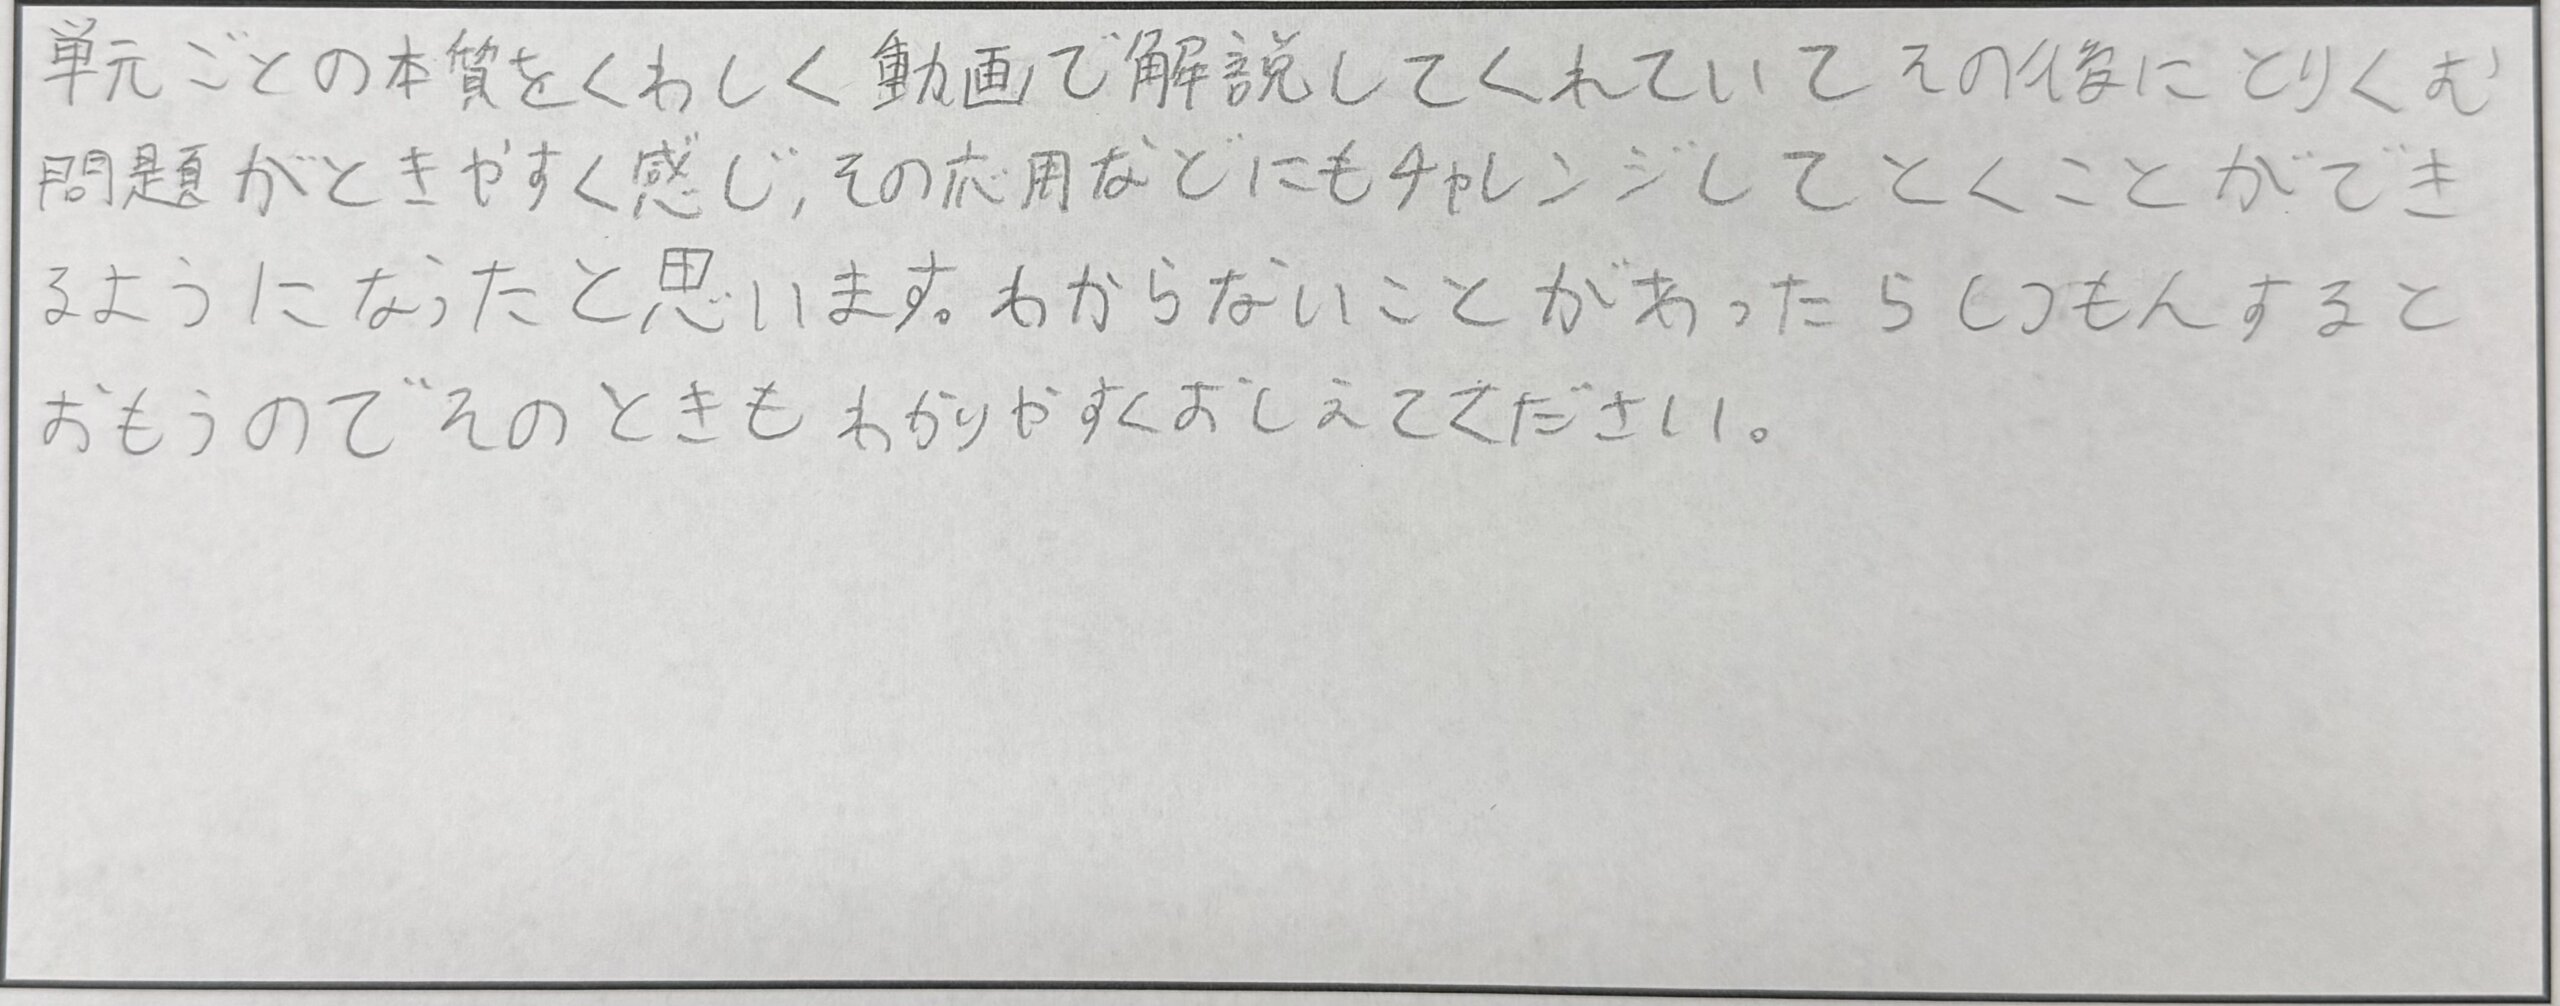 単元ごとの本質をくわしく動画で解説してくれていてその後にとりくむ
問題がときやすく感じ,その応用などにもチャレンジしてとくことができ
るようになったと思います。わからないことがあったらしつもんすると
おもうのでそのときもわかりやすくおしえてください。